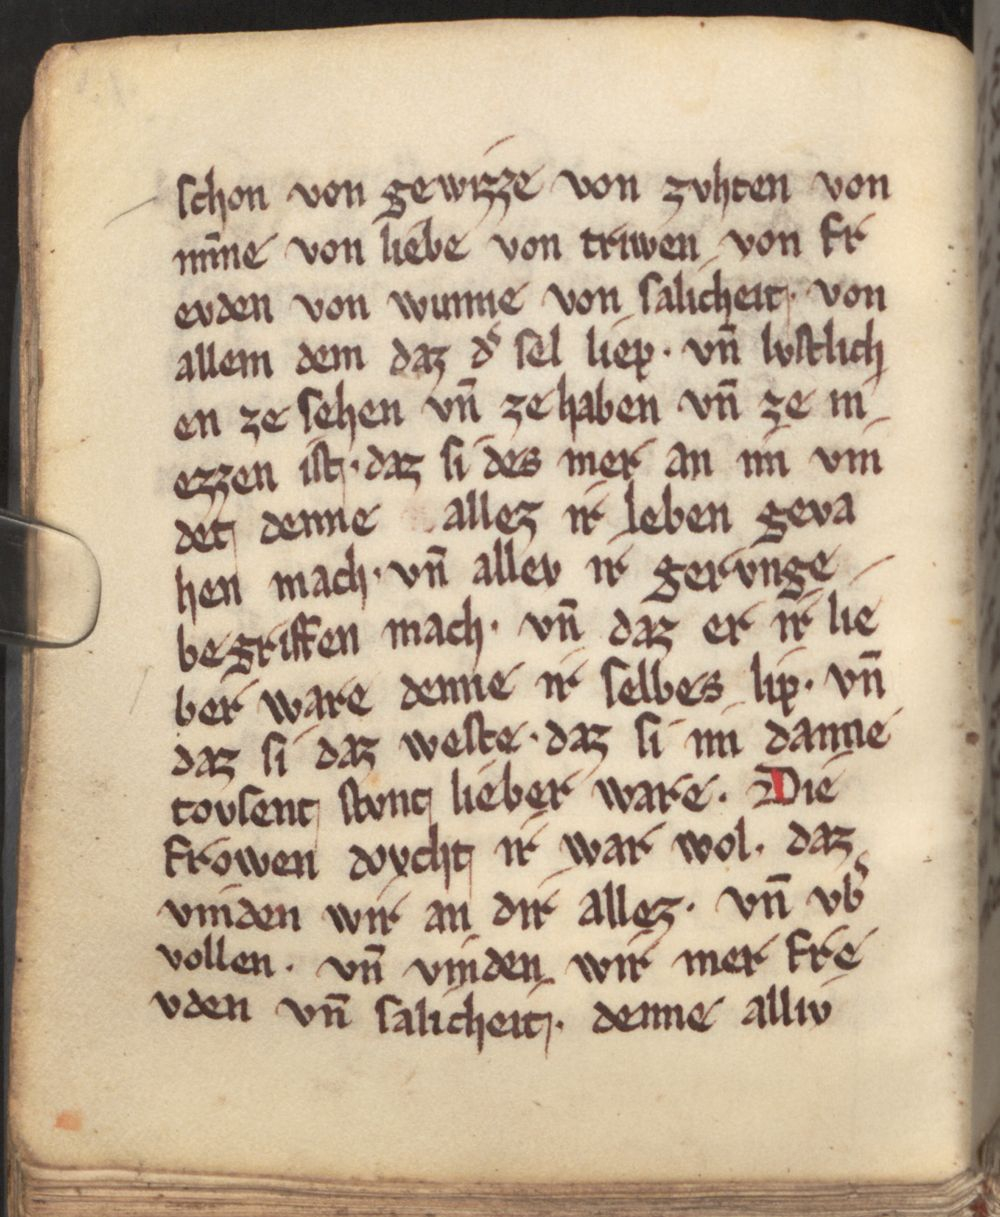 schon von gewizze von zvhten von
min̄e von liebe von triwen von fr
evden von wunne von salicheit· von
allem dem daz d͛ sel liep· vn̄ lvstlich
en ze sehen vn̄ ze haben vn̄ ze ni
ezzen ist· daz si des mer an im vin
det denne allez ir leben geva
hen mach· vn̄ allev ir gervnge
begriffen mach· vn̄ daz er ir lie
ber ware denne ir selbes lip· vn̄
daz si daz weste· daz si im danne
tovsent stvnt lieber ware· Die
frowen dvcht ir war wol· daz
vinden wir an dir allez· vn̄ vb͛
vollen· vn̄ vinden wir mer fre
vden vn̄ salicheit· denne alliv